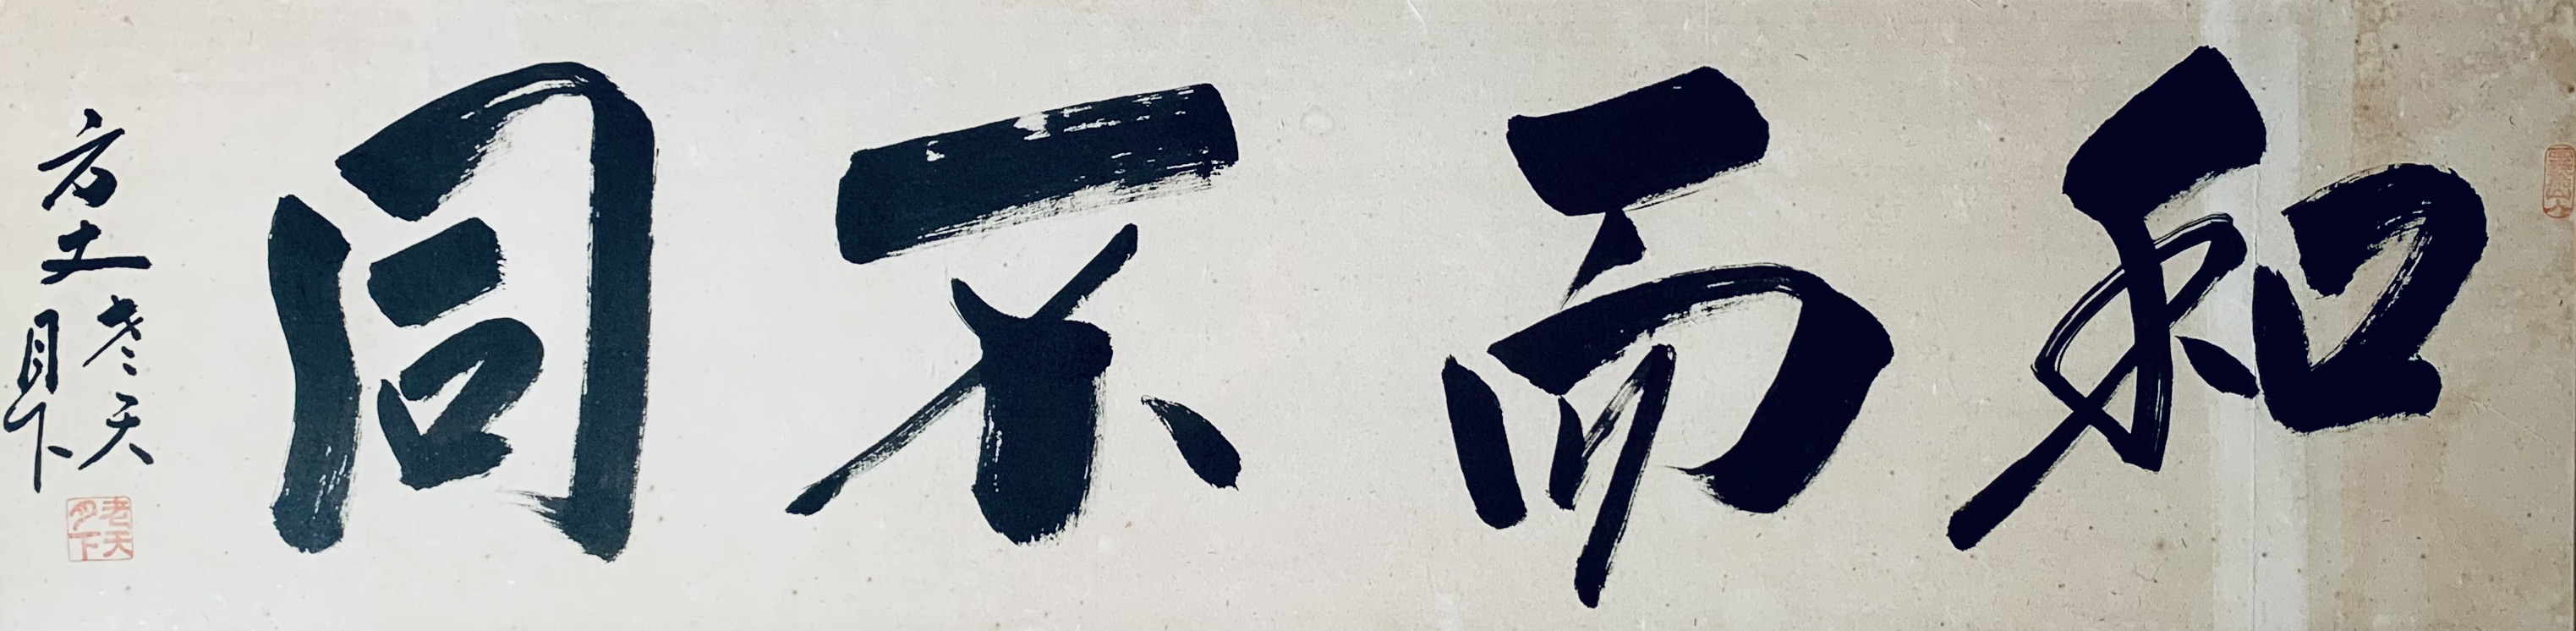 和而不同
方丈老天
月下
老天
月下